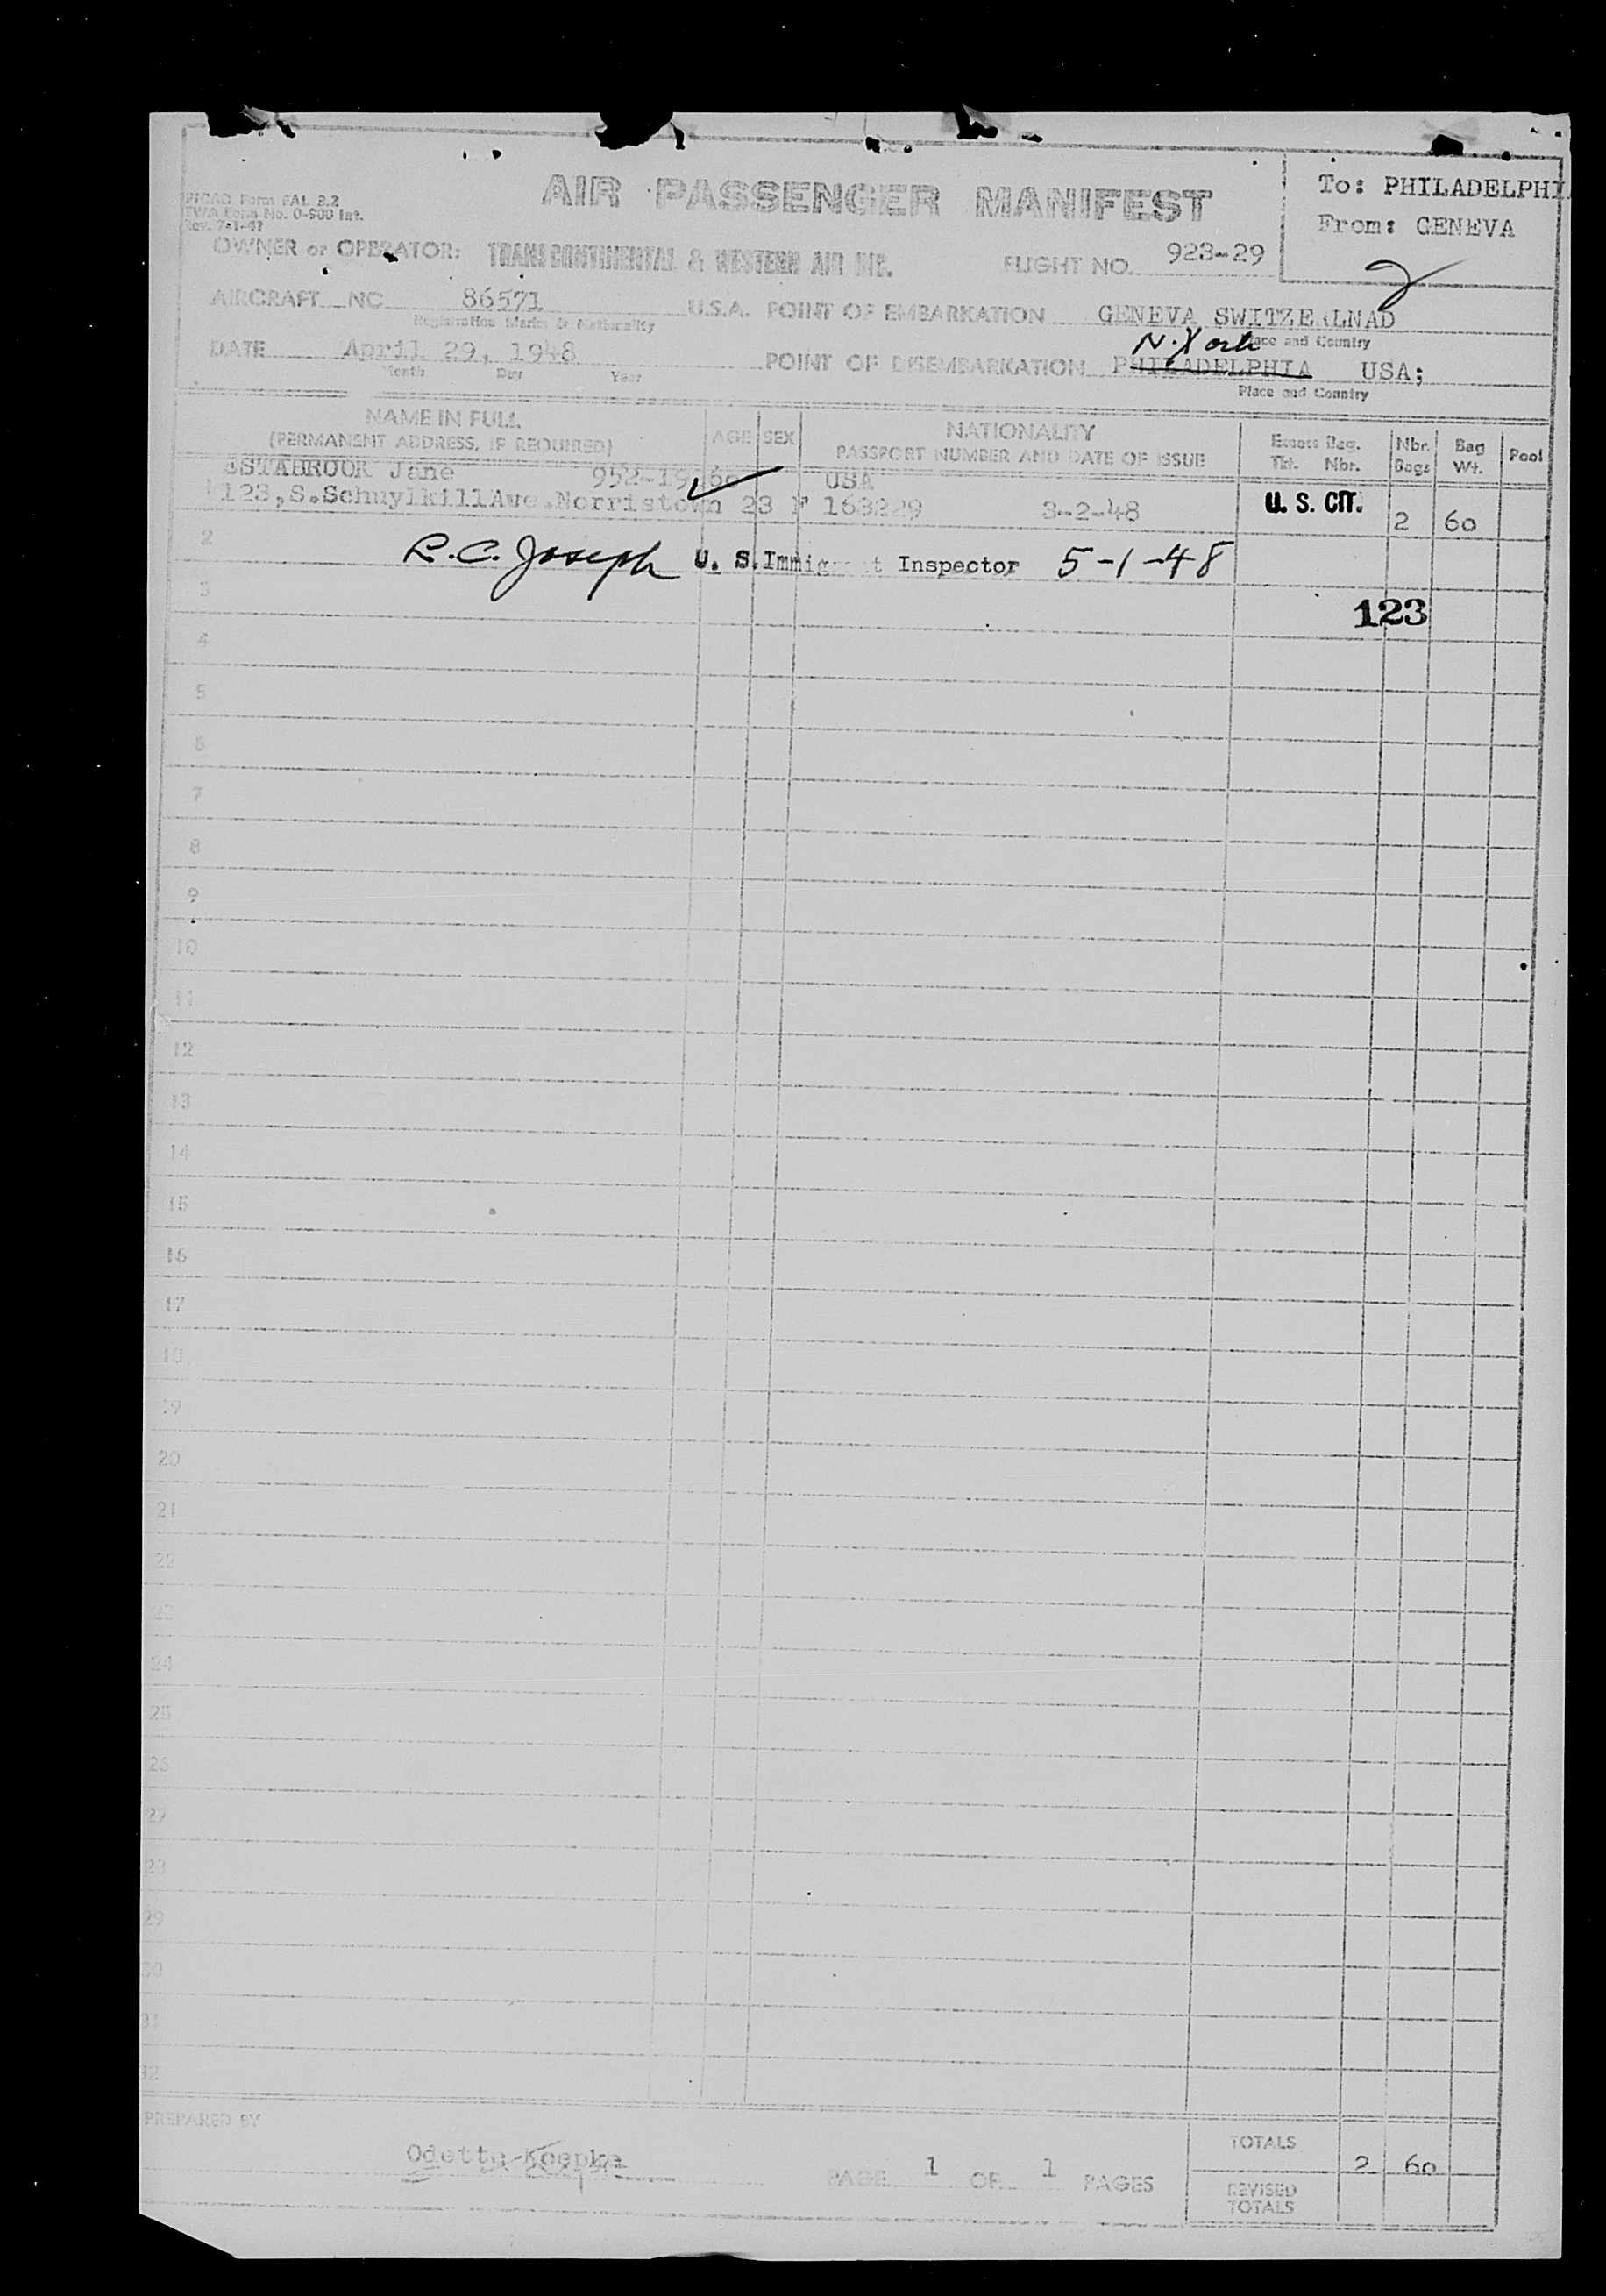 PICAO Form FAL 2.2
TWA Form No. O-900 Int.
Rev. 7-1-47
AIR PASSENGER MANIFEST
To: PHILADELPHIA
From: GENEVA
OWNER or OPERATOR: TRANSCONTINENTAL & WESTERN AIR INC.
FLIGHT NO. 923-29
2
AIRCRAFT NO 86571
Registration Marks & Nationality
U.S.A. POINT OF EMBARKATION GENEVA SWITZERLNAD
Place and Country
N. York
DATE April 29, 1948
Month Day Year
POINT OF DISEMBARKATION PHILADELPHIA USA;
Place and Country
NAME IN FULL
(PERMANENT ADDRESS, IF REQUIRED)
AGE SEX
NATIONALITY
PASSPORT NUMBER AND DATE OF ISSUE
Excess Bag.
Tkt. Nbr.
Nbr.
Bags
Bag
Wt.
Pool
ESTABROOK Jane USA
123,S.SchuylkillAve.Norristown 23 F 163229 3-2-48 U. S. CIT. 2 60
2 R.C. Joseph U. S. Immigrant Inspector 5-1-48
3 123
4
5
6
7
8
9
10
11
12
13
14
15
16
17
18
19
20
21
22
23
24
25
26
27
28
29
30
31
32
PREPARED BY
Odette Koepke
PAGE 1 OF 1 PAGES
TOTALS 2 60
REVISED
TOTALS